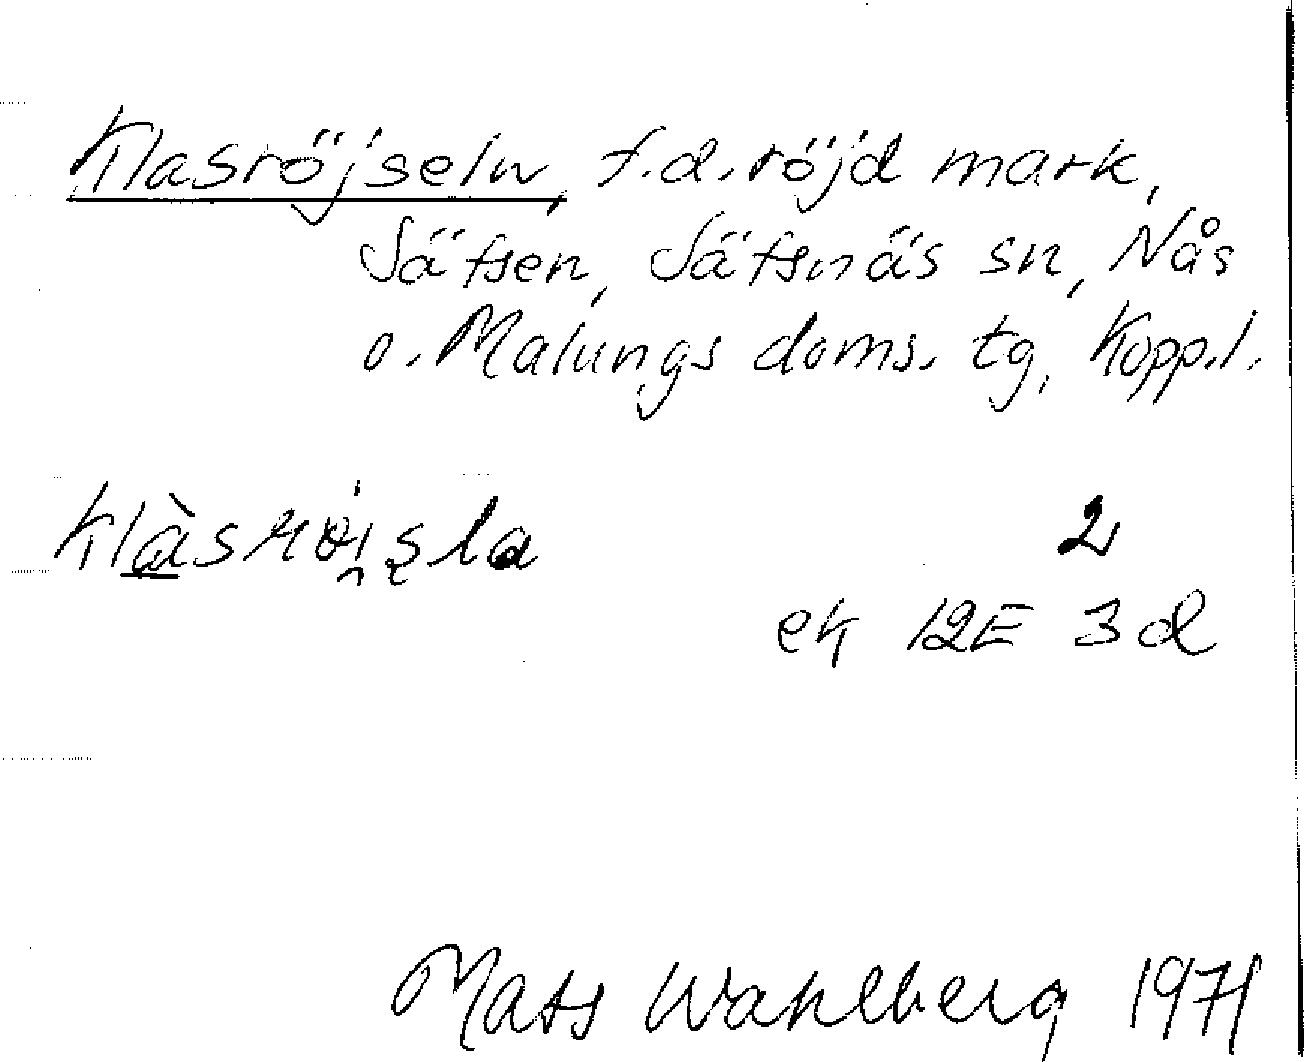 Klasröjseln, f.d. röjd mark,
Säfsen, Säfsnäs sn, Nås
o. Malungs doms. tg, Kopp.l.
2
ek 12E 3d
Mats Wahlberg 1971